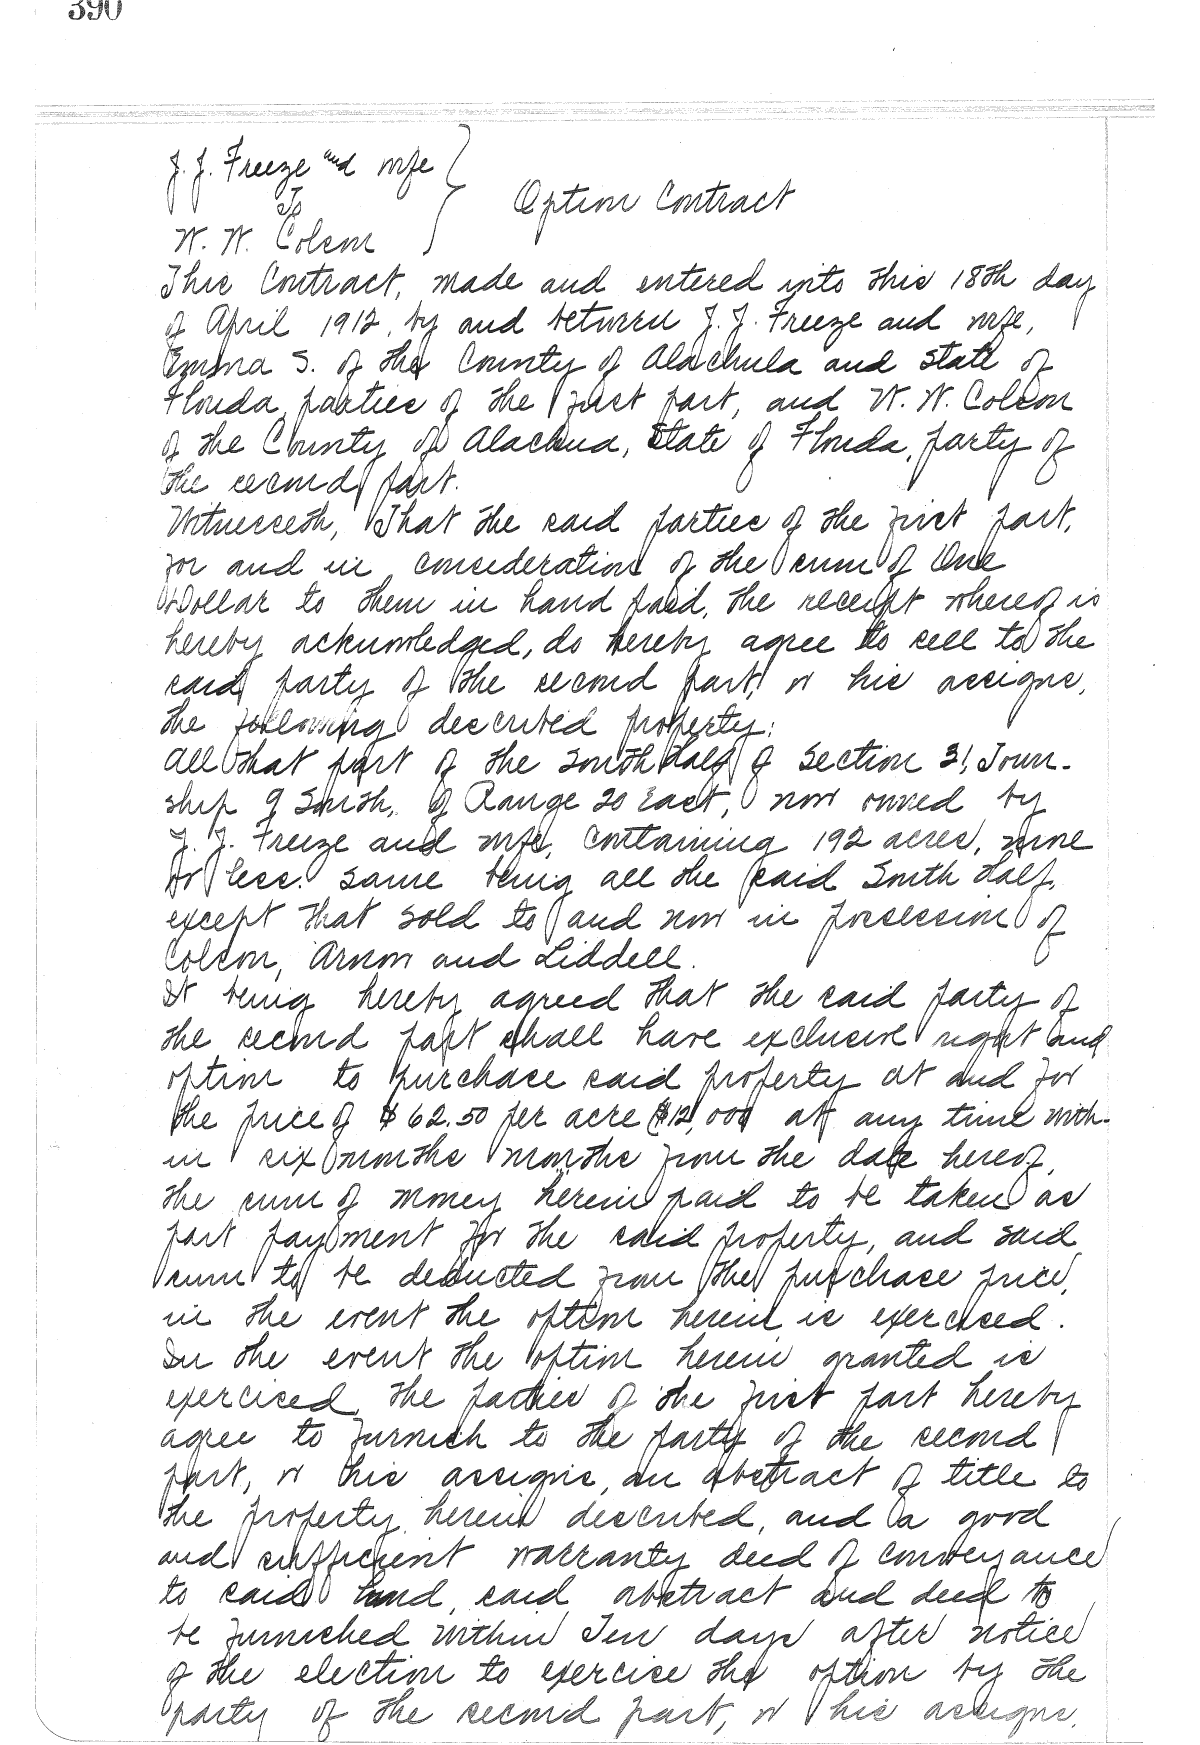 390
J. J. Freeze and wife
To
W. W. Colson
Option Contract
This Contract, made and entered into this 18th day
of April 1912, by and between J. J. Freeze and wife,
Emma S. of the County of Alachula and State of
Florida, parties of the first part, and W. W. Colson
of the County of Alachua, State of Florida, party of
the second part.
Witnesseth, That the said parties of the first part,
for and in consideration of the sum of One
Dollar to them in hand paid, the receipt whereof is
hereby acknowledged, do hereby agree to sell to the
said party of the second part, or his assigns,
the following described property:
All that part of the South Half of Section 31, Town-
ship 9 South, of Range 20 East, now owned by
J. J. Freeze and wife, containing 192 acres, more
or less. Same being all the said South Half,
except that sold to and now in possession of
Colson, Arnow and Liddell.
It being hereby agreed that the said party of
the second part shall have exclusive right and
option to purchase said property at and for
the price of $62.50 per acre $12,000 at any time with-
in six months months from the date hereof,
the sum of money herein paid to be taken as
part payment for the said property, and said
sum to be deducted from the purchase price,
in the event the option herein is exercised.
In the event the option herein granted is
exercised, the parties of the first part hereby
agree to furnish to the party of the second
part, or his assigns, an abstract of title to
the property herein described, and a good
and sufficient warranty deed of conveyance
to said land, said abstract and deed to
be furnished within Ten days after notice
of the election to exercise the option by the
party of the second part, or his assigns.